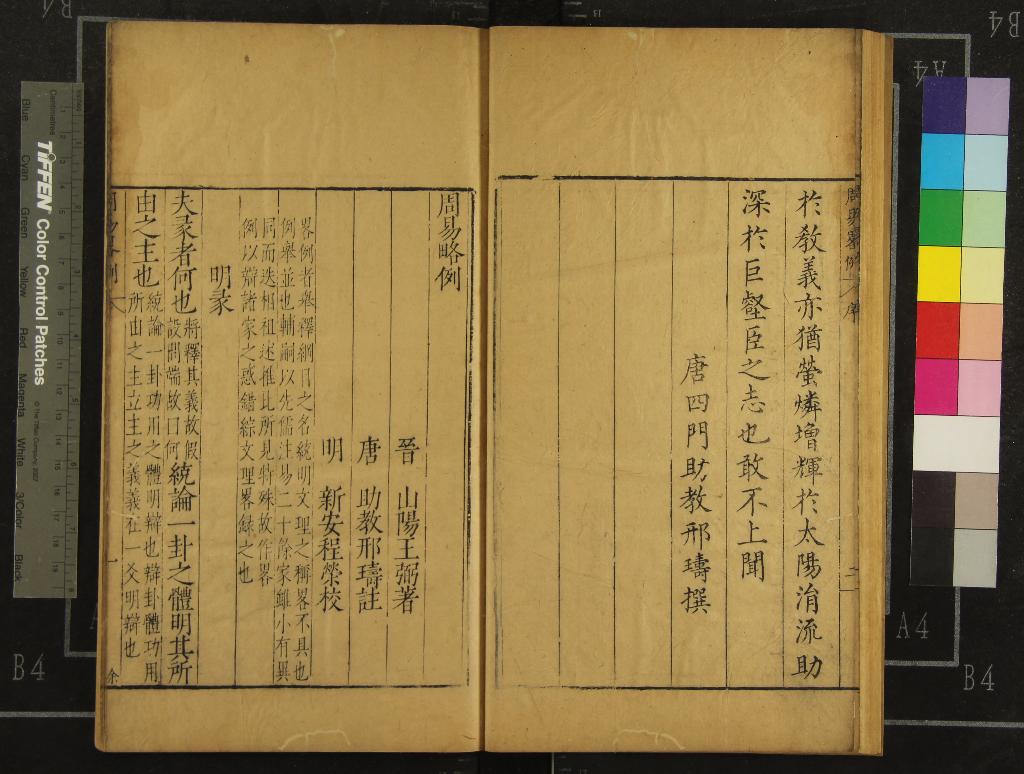 於教義亦猶螢燐增輝於太陽涓流助
深於巨壑臣之志也敢不上聞
唐四門助教邢璹撰
周易略例
晉 山陽王弼著
唐 助教邢璹註
明 新安程榮校
畧例者舉釋綱目之名統明文理之稱畧不具也
例舉並也輔嗣以先儒注易二十餘家雖小有異
同而迭相祖述推比所見特殊故作畧
例以辯諸家之惑錯綜文理畧錄之也
明彖
夫彖者何也
將釋其義故假
設問端故曰何
統論一卦之體明其所
由之主也
統論一卦功用之體明辯也辯卦體功用
所由之主立主之義義在一爻明辯也
一
余
B4
A4
B4
A4
B4
TIFFEN Color Control Patches
© The Tiffen Company, 2007
Centimetres
Blue
Cyan
Green
Yellow
Red
Magenta
White
3/Color
Black